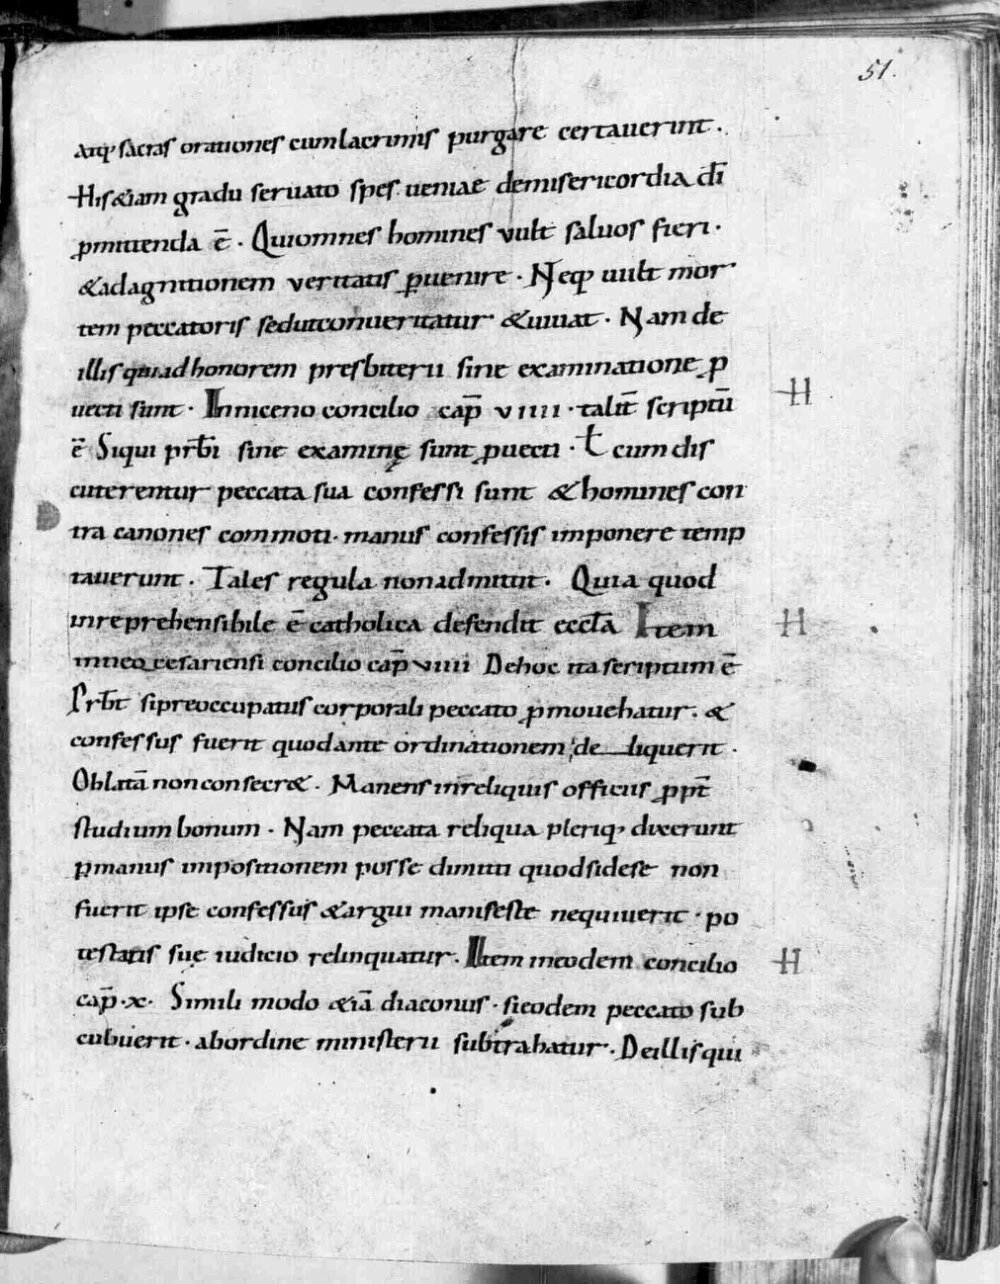 51.
atq; sacras orationes cum lacrimis purgare certauerint.
His & iam gradu seruato spes ueniae de misericordia dī
p̄mittenda ē. Qui omnes homines vult saluos fieri.
& ad agnitionem veritatis ꝑuenire. Neq; uult mor
tem peccatoris sed ut conuertatur & uiuat. Nam de
illis qui ad honorem presbiterii sine examinatione ꝓ
uecti sunt. In niceno concilio cap̄ viiii. talit̄ scriptū
ē Siqui prb̄i sine examinę sunt ꝓuecti. ł cum dis
cuterentur peccata sua confessi sunt & homines con
tra canones commoti. manus confessis imponere temp
tauerunt. Tales regula non admittit. Quia quod
inreprehensibile ē catholica defendit eccłā Item
in neocesariensi concilio cap̄ viiii De hoc ita scriptum ē
Prb̄t si preoccupatus corporali peccato ꝓmouebatur. &
confessus fuerit quod ante ordinationem deliquerit.
Oblatā non consecr&. Manens in reliquis officiis ꝓpt̄
studium bonum. Nam peccata reliqua pleriq; dixerunt
ꝑ manus impositionem posse dimitti quod si de se non
fuerit ipse confessus & argui manifeste nequiuerit. po
testatis suę iudicio relinquatur. Item in eodem concilio
cap̄. x. Simili modo & iā diaconus. si eodem peccato sub
cubuerit. ab ordine ministerii subtrahatur. De illis qui